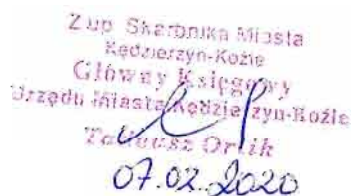 Z up. Skarbnika Miasta
Kędzierzyn-Koźle
Główny Księgowy
Urzędu Miasta Kędzierzyn-Koźle
Tadeusz Orlik
07.02.2020